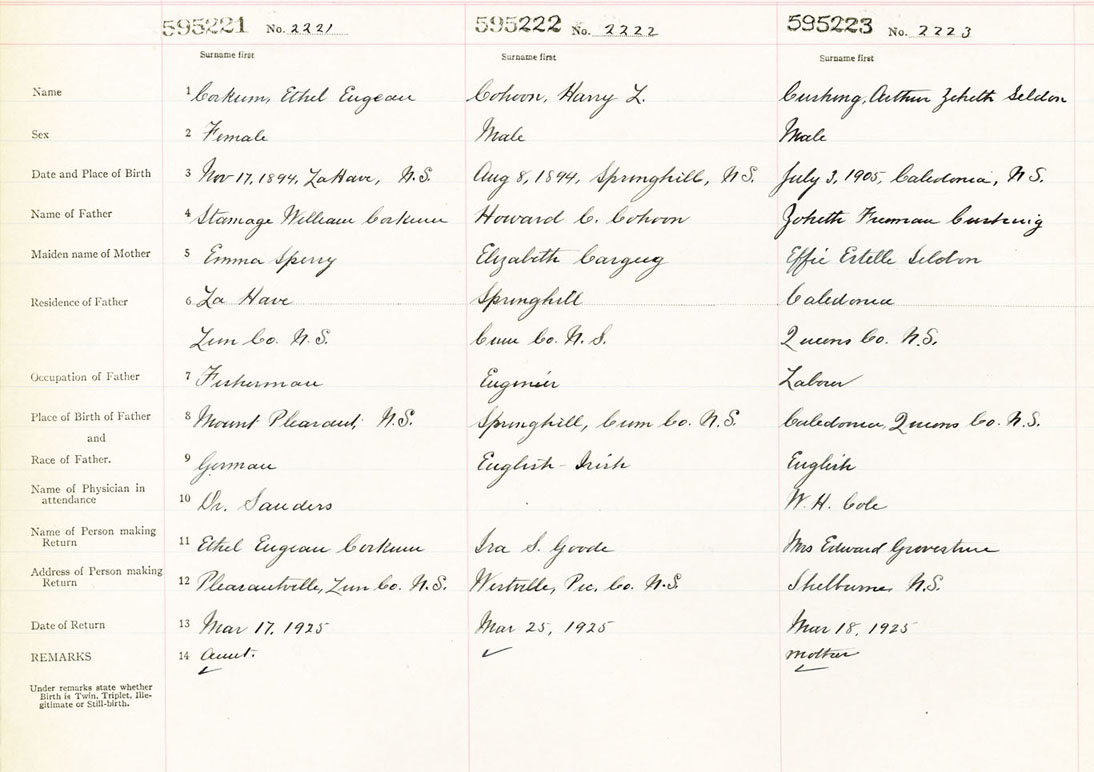 595221 No. 2221 595222 No. 2222 595223 No. 2223
Surname first Surname first Surname first
Name 1 Corkum, Ethel Eugeau Cohoon, Harry L. Cushing, Arthur Zoheth Seldon
Sex 2 Female Male Male
Date and Place of Birth 3 Nov 17, 1894, LaHave, N.S. Aug 8, 1894, Springhill, N.S. July 3, 1905, Caledonia, N.S.
Name of Father 4 Stamage William Corkum Howard C. Cohoon Zoheth Freeman Cushing
Maiden name of Mother 5 Emma Sperry Elizabeth Effie Estelle Seldon
Residence of Father 6 La Have Springhill Caledonia
Lun Co. N.S. Cum Co. N.S. Queens Co. N.S.
Occupation of Father 7 Fisherman Engineer Laborer
Place of Birth of Father 8 Mount Pleasant, N.S. Springhill, Cum Co. N.S. Caledonia, Queens Co. N.S.
and
Race of Father. 9 German English - Irish English
Name of Physician in
attendance 10 Dr. Sanders W. H. Cole
Name of Person making
Return 11 Ethel Eugeau Corkum Ira S. Goode Mrs Edward
Address of Person making
Return 12 Pleasantville, Lun Co. N.S. Westville, Pic. Co. N.S. Shelburne, N.S.
Date of Return 13 Mar 17, 1925 Mar 25, 1925 Mar 18, 1925
REMARKS 14 Aunt. Mother
Under remarks state whether
Birth is Twin, Triplet, Ille-
gitimate or Still-birth.